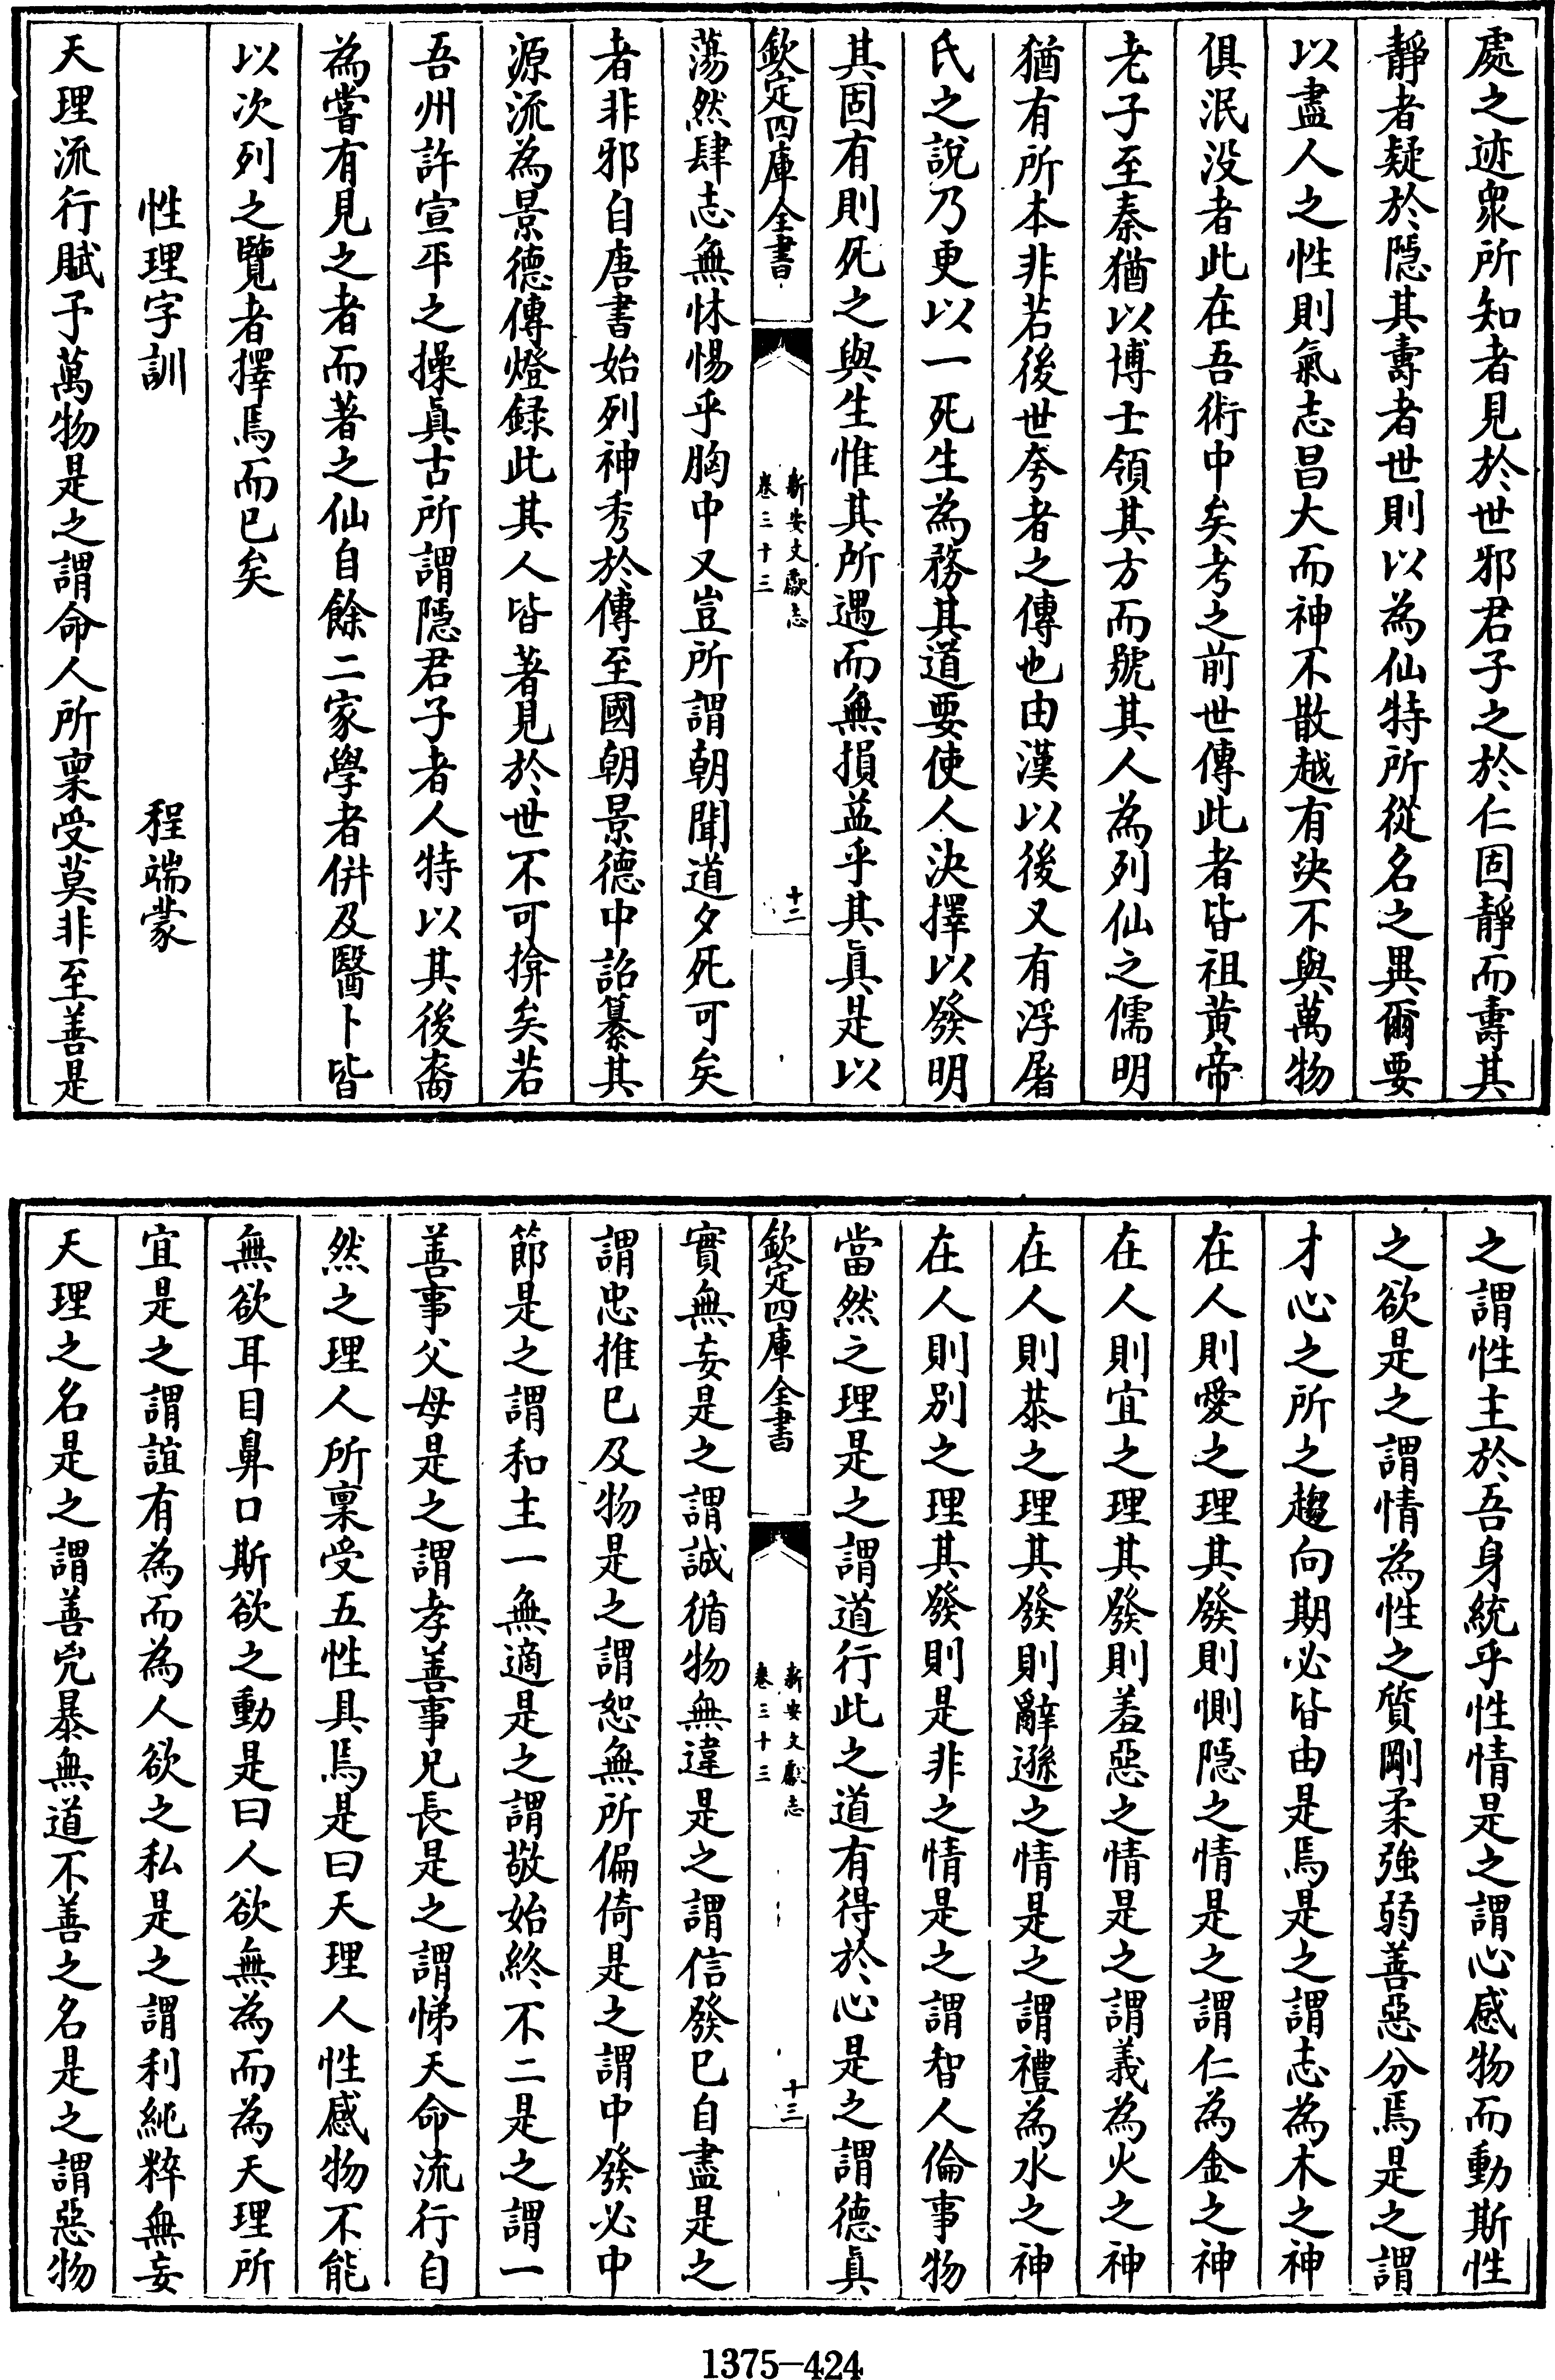 處之迹衆所知者見於世邪君子之於仁固靜而壽其
靜者疑於隠其壽者世則以為仙特所從名之異爾要
以盡人之性則氣志昌大而神不散越有決不與萬物
俱泯没者此在吾術中矣考之前世傳此者皆祖黄帝
老子至秦猶以博士領其方而號其人為列仙之儒明
猶有所本非若後世夸者之傳也由漢以後又有浮屠
氏之說乃更以一死生為務其道要使人決擇以發明
其固有則死之與生惟其所遇而無損益乎其眞是以
欽定四庫全書
新安文獻志
卷三十三
十二
蕩然肆志無怵惕乎胸中又豈所謂朝聞道夕死可矣
者非邪自唐書始列神秀於傳至國朝景德中詔纂其
源流為景德傳燈録此其人皆著見於世不可揜矣若
吾州許宣平之操眞古所謂隠君子者人特以其後裔
為嘗有見之者而著之仙自餘二家學者併及醫卜皆
以次列之覽者擇焉而已矣
性理字訓 程端蒙
天理流行賦予萬物是之謂命人所稟受莫非至善是
之謂性主於吾身統乎性情是之謂心感物而動斯性
之欲是之謂情為性之質剛柔強弱善惡分焉是之謂
才心之所之趨向期必皆由是焉是之謂志為木之神
在人則愛之理其發則惻隠之情是之謂仁為金之神
在人則宜之理其發則羞惡之情是之謂義為火之神
在人則恭之理其發則辭遜之情是之謂禮為水之神
在人則别之理其發則是非之情是之謂智人倫事物
當然之理是之謂道行此之道有得於心是之謂德眞
欽定四庫全書
新安文獻志
卷三十三
十三
實無妄是之謂誠循物無違是之謂信發已自盡是之
謂忠推已及物是之謂恕無所偏倚是之謂中發必中
節是之謂和主一無適是之謂敬始終不二是之謂一
善事父母是之謂孝善事兄長是之謂悌天命流行自
然之理人所稟受五性具焉是曰天理人性感物不能
無欲耳目鼻口斯欲之動是曰人欲無為而為天理所
宜是之謂誼有為而為人欲之私是之謂利純粹無妄
天理之名是之謂善兇暴無道不善之名是之謂惡物
1375-424